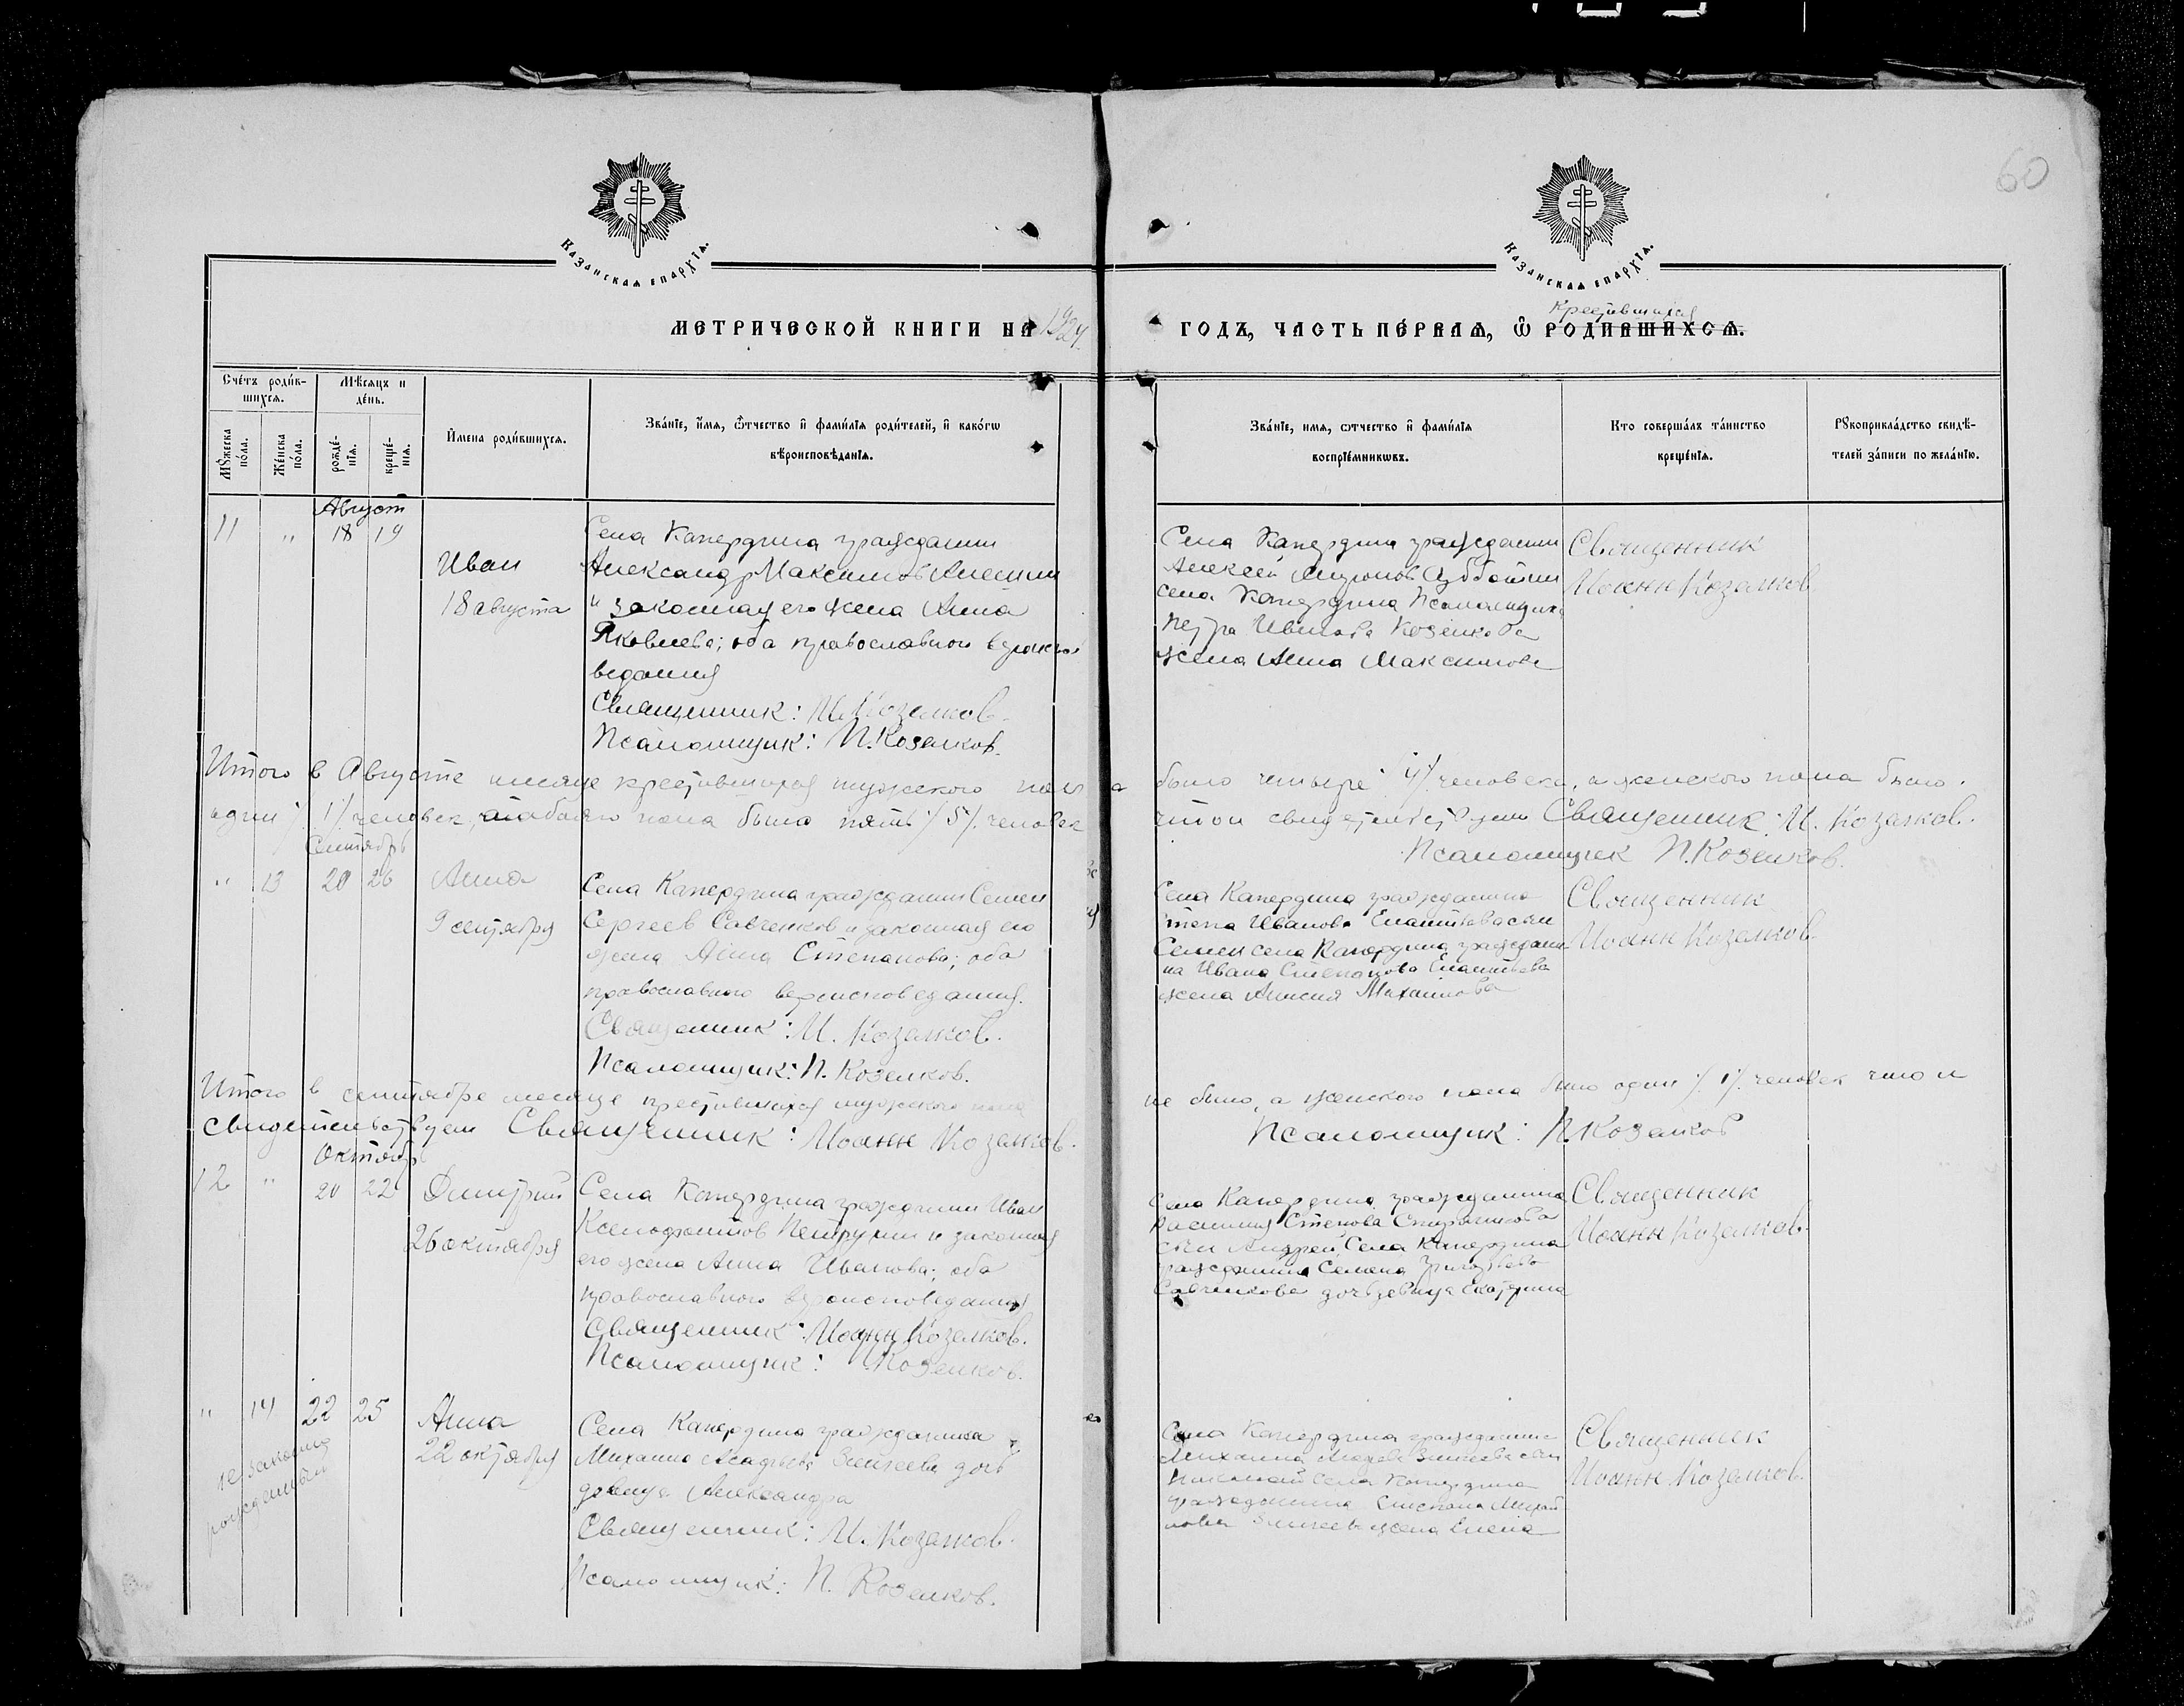 60
Казанская епархїа.
Казанская епархїа.
МЕТРИЧЕСКОЙ КНИГИ НА 1924 ГОДЪ, ЧАСТЬ ПЕ́РВАѦ, Ѽ РОДИВШИХСѦ.
Крестившихся
Сче́тъ роди́вшихсѧ.
Мѣ́сѧцъ и де́нь.
Мꙋ́жеска по́ла.
Же́нска по́ла.
рожде́нїѧ.
креще́нїѧ.
И҆мена роди́вшихсѧ.
Зва́нїе, и҆́мѧ, ѻ҆́тчество и҆ фами́лїѧ роди́телей, и҆ како́гѡ
вѣроисповѣ́данїѧ.
Зва́нїе, имѧ, ѻтчество и҆ фами́лїѧ
воспрїе́мникѡвъ.
Кто соверша́лъ та́инство
креще́нїѧ.
Рꙋкоприкла́дство свидѣ́-
телей за́писи по жела́нїю.
Август
11 " 18 19
Иван
18 августа
Села Капердина гражданин
Александр Максимов
и законная его жена Анна
Яковлева; оба православнои вероиспо
ведания
Священник: И. Козалков.
Псаломщик: П. Козелков.
Села Капердина гражданин
Алексей
села Капердина Псаломщика
Петра Иванова Козелкова
жена Анна Максимова
Священник
Иоанн Козалков
Итого в Августе месяце крестившихся мужеского пола было четыре /4/ человека, а женского пола было
один /1/ человек, обоего пола было пять /5/ человек
что и свидетельствуем Священник: И. Козалков.
Псаломщик П. Козелков.
Сентябрь
" 13 20 26
Анна
9 сентября
Села Капердина гражданин Семен
Сергеев Савченков и законная его
жена Анна Степанова; оба
православного вероисповедания.
Священник: И. Козалков.
Псаломщик: П. Козелков.
Села Капердина гражданина
Ивановa сын
Семен села Капердина граждани
на Ивана Степанова
жена Михаилова
Священник
Иоанн Козалков
Итого в сентябре месяце крестившихся мужеского пола не было, а женского пола было один /1/ человек что и
свидетельствуем Священник: Иоанн Козалков.
Псаломщик: П. Козелков
Октябрь
12 " 20 22
Димитрий
26 октября
Села Капердина гражданин Иван
Ксенофонтов Петрунин и законная
его жена Анна Иванова; оба
православного вероисповедания
Священник: Иоанн Козалков.
Псаломщик: Козелков.
Села Капердина гражданина
сын Андрей, Села Капердина
гражданина Семена Григорьева
Савченкова дочь девица Екатерина
Священник
Иоанн Козалков.
" 14 22 25
незаконно
рожденный
Анна
22 октября
Села Капердина гражданина
Михаила дочь
девица Александра
Священник: И. Козалков.
Псаломщик: П. Козелков.
Села Капердина гражданина
Михаила сын
Николай Села Капердина
гражданина Степана Михай
лова жена Елена
Священник
Иоанн Козалков.